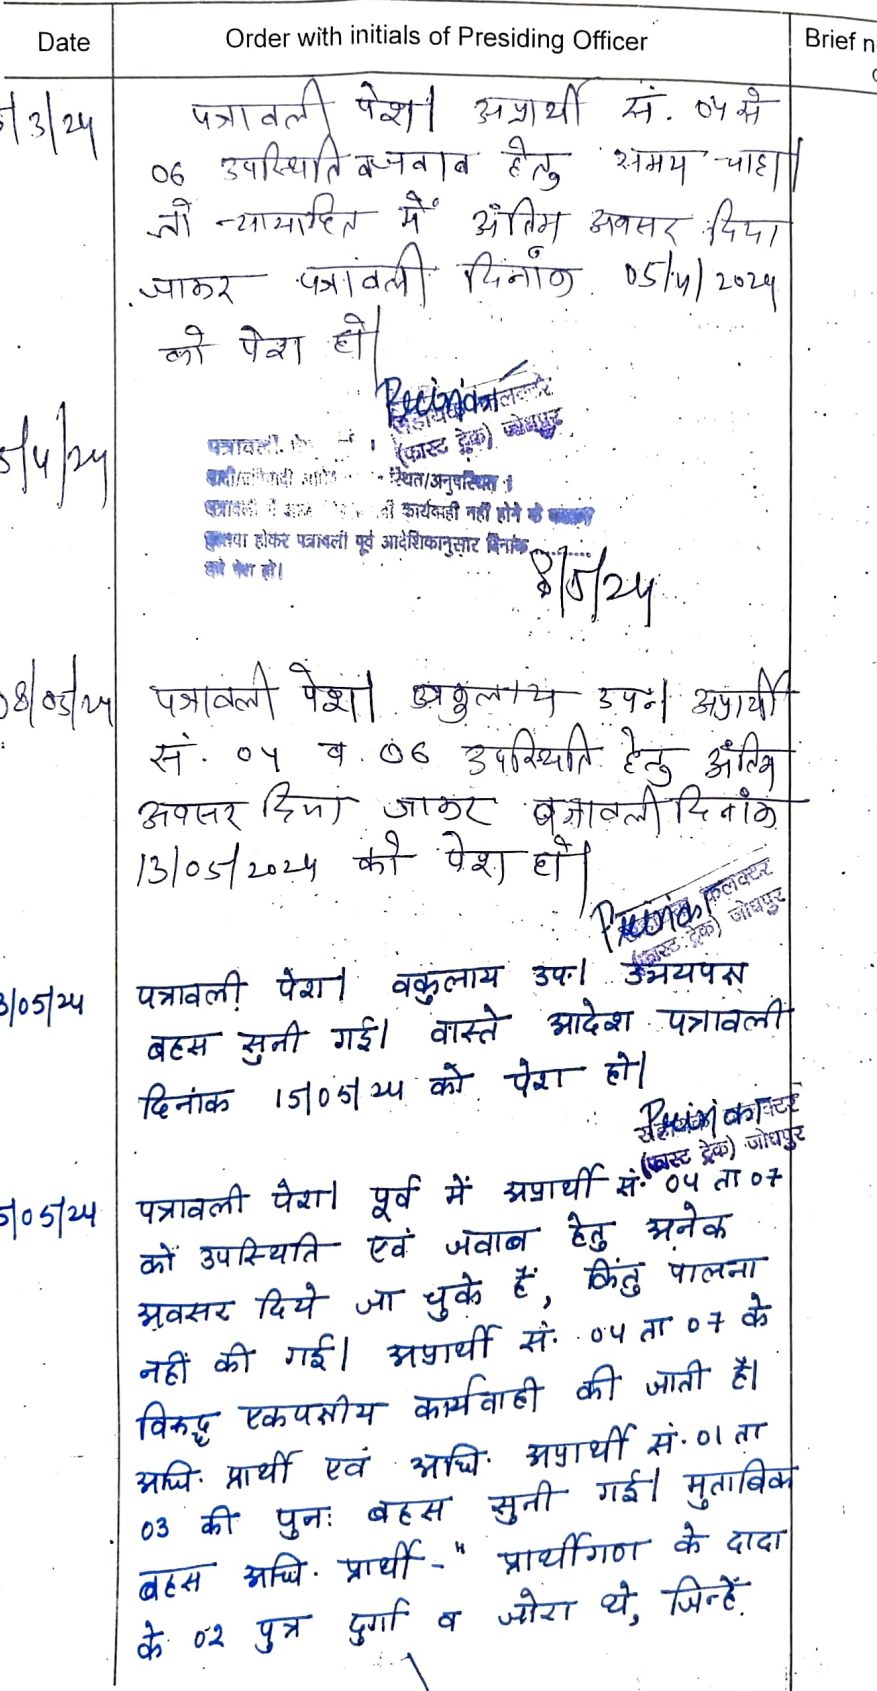 Date
Order with initials of Presiding Officer
Brief n
/3/24
पत्रावली पेश। अप्रार्थी सं. 04 से
06 उपस्थिति व जवाब हेतु समय चाहा।
जो न्यायहित में अंतिम अवसर दिया
जाकर पत्रावली दिनांक 05/4/2024
को पेश हो।
कलक्टर
(फास्ट ट्रेक) जोधपुर
5/4/24
पत्रावली
स्थित/अनुपस्थित।
पत्रावली में आज कार्यवाही नहीं होने के
होकर पत्रावली पूर्व आदेशिकानुसार दिनांक ........
को पेश हो।
8/5/24
08/05/24
पत्रावली पेश। वकुलाय उप.। अप्रार्थी
सं. 04 व 06 उपस्थिति हेतु अंतिम
अवसर दिया जाकर पत्रावली दिनांक
13/05/2024 को पेश हो।
कलक्टर
(फास्ट ट्रेक) जोधपुर
3/05/24
पत्रावली पेश। वकुलाय उप.। उभयपक्ष
बहस सुनी गई। वास्ते आदेश पत्रावली
दिनांक 15/05/24 को पेश हो।
(फास्ट ट्रेक) जोधपुर
5/05/24
पत्रावली पेश। पूर्व में अप्रार्थी सं. 04 ता 07
को उपस्थिति एवं जवाब हेतु अनेक
अवसर दिये जा चुके हैं, किंतु पालना
नहीं की गई। अप्रार्थी सं. 04 ता 07 के
विरुद्ध एकपक्षीय कार्यवाही की जाती है।
अधि. प्रार्थी एवं अधि. अप्रार्थी सं. 01 ता
03 की पुनः बहस सुनी गई। मुताबिक
बहस अधि. प्रार्थी - " प्रार्थीगण के दादा
के 02 पुत्र दुर्गा व जोरा थे, जिन्हें